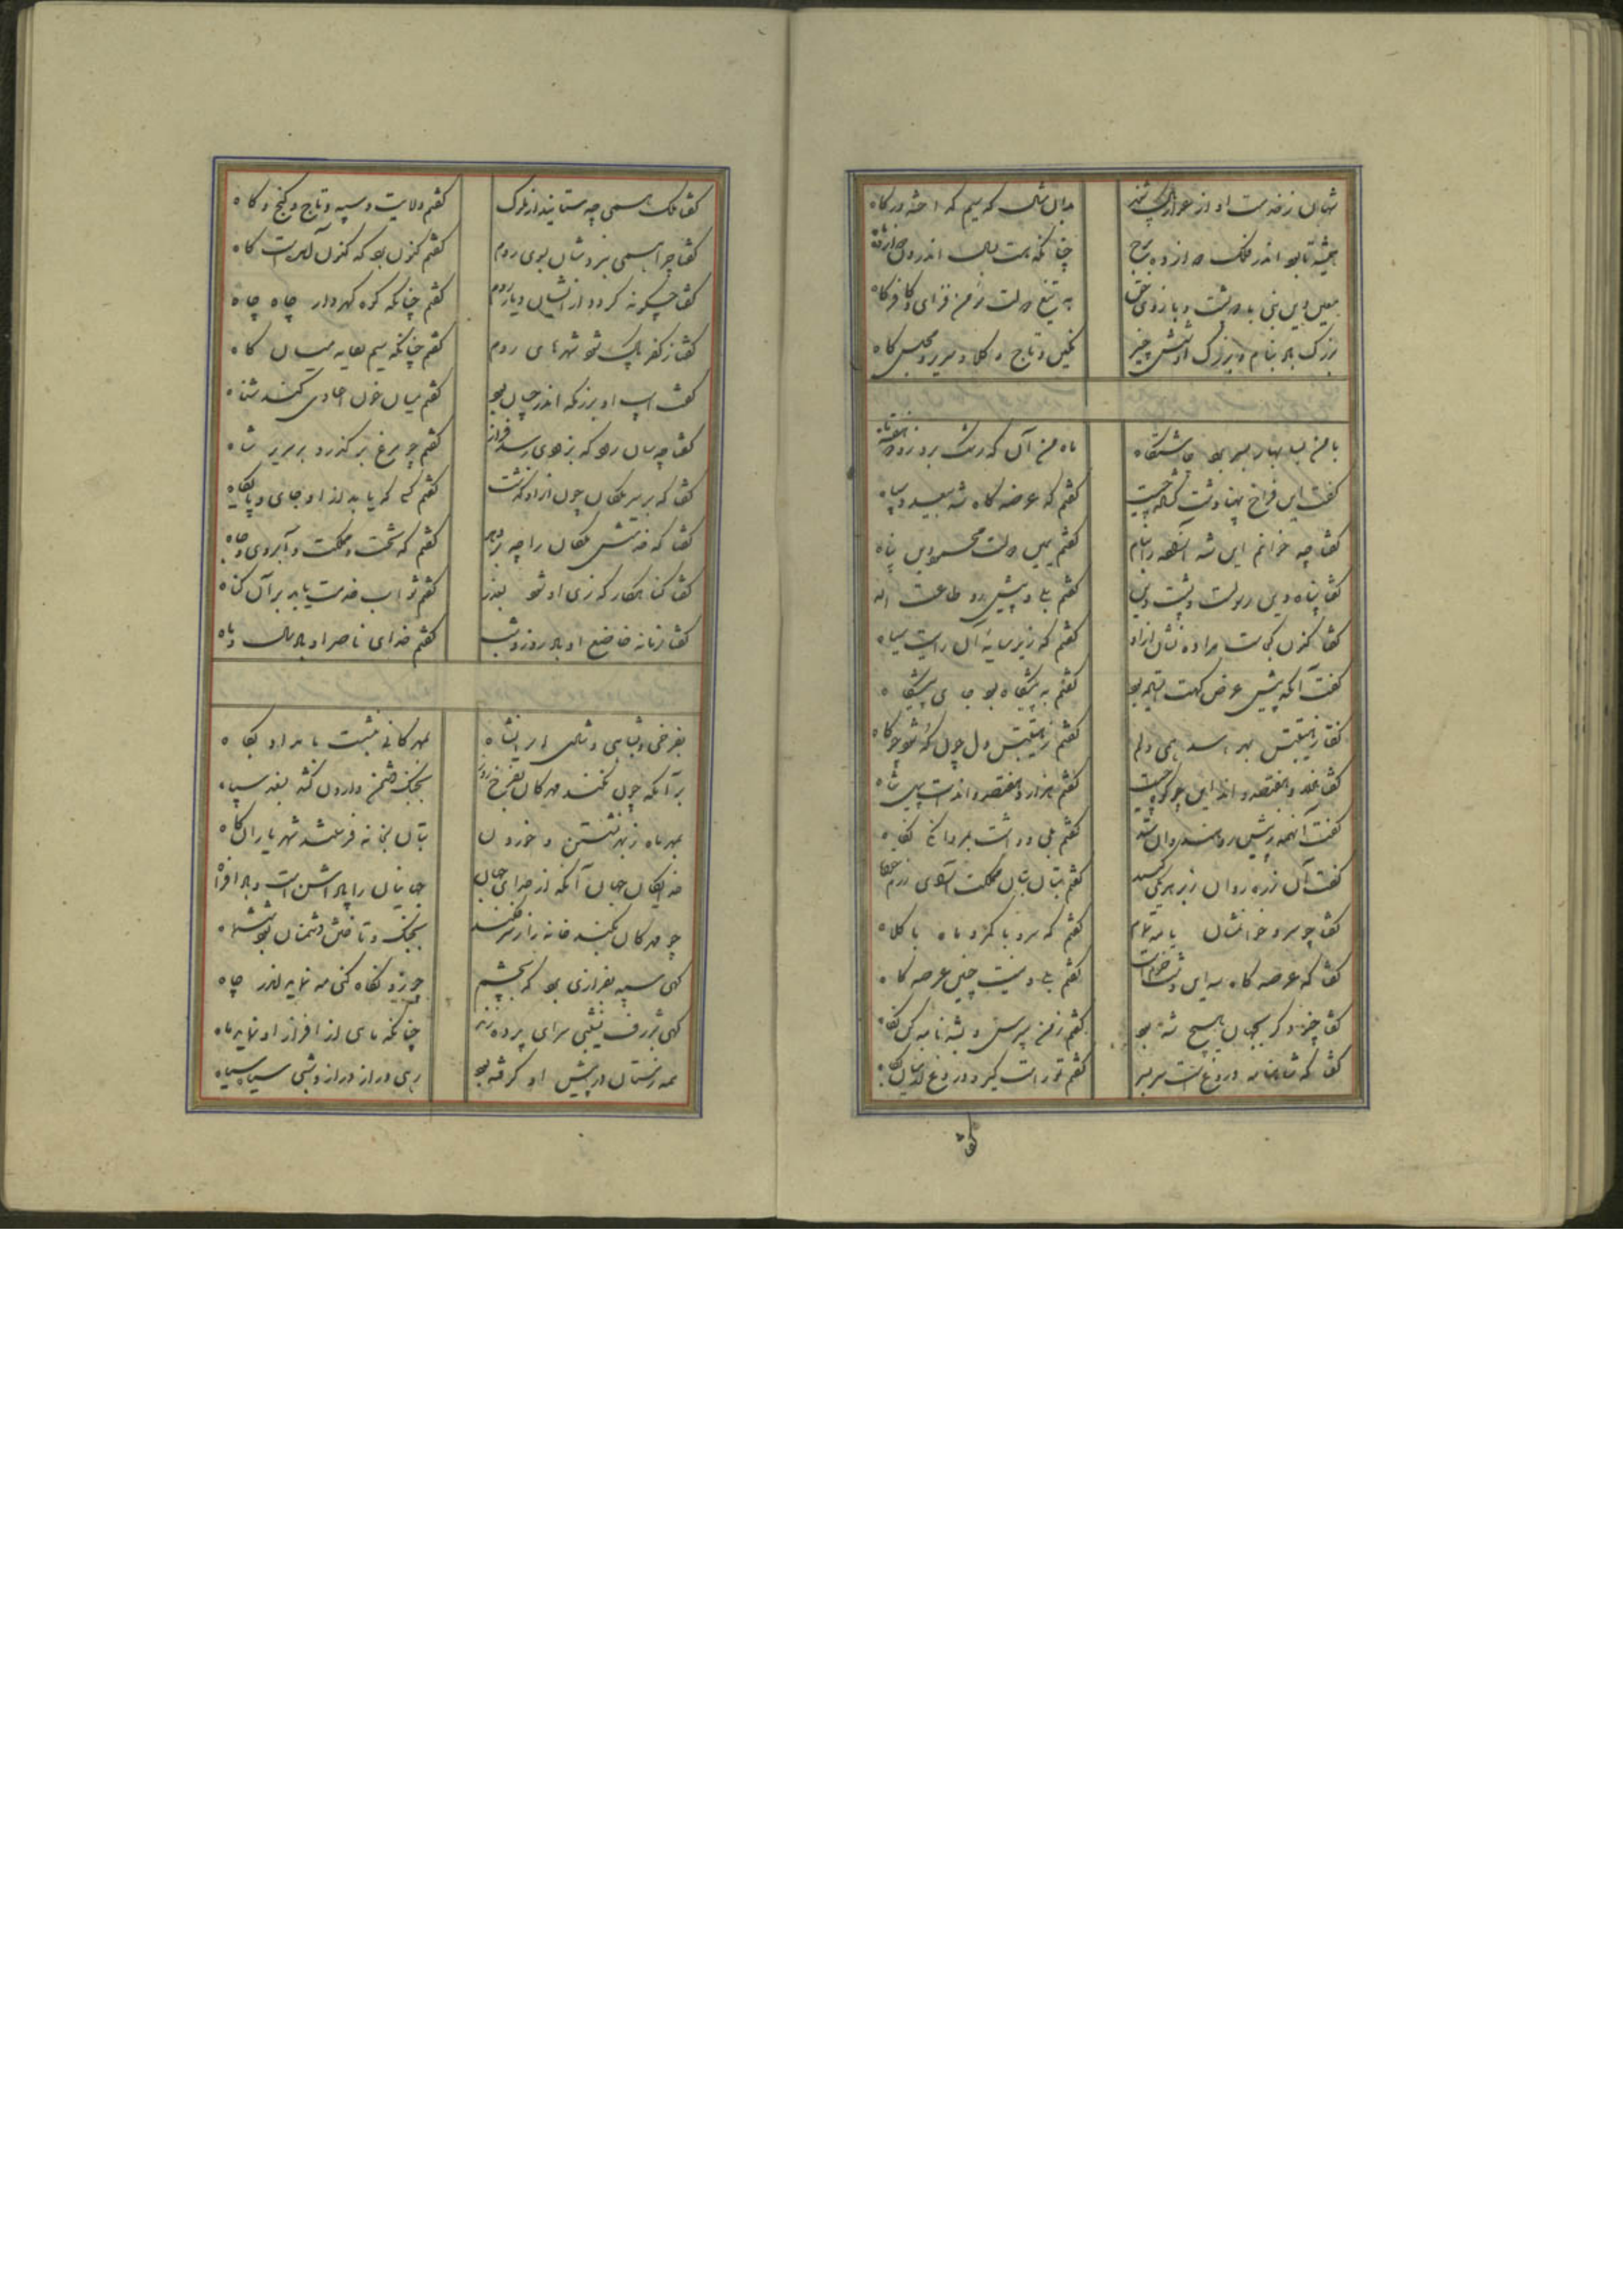 شهان ز خدمت او از عوار پاک شوند بدان مثال که سیم که اخته در گاه
همیشه تا بود اندر فلک دوازده برج چنانکه هست بسال اندرون دوازده ماه
معین دین نبی باد و پشت و بازوی حق به تیغ دولت مؤمن فزای و کافر کاه
بزرگ باد بنام و بزرگ او شش چیز نگین و تاج و کلاه و سریر و مجلس و گاه
با من بسایه بید بود چاشتگاه ماه من آن که رشک برد زو دو هفته ماه
گفت این فراخ پهنا دشت گشاده چیست گفتم که عرضه گاه شه بیعدد سپاه
گفتا چه خوانم این شه آزاده را بنام گفتم یمین دولت محمود دین پناه
گفتا پناه دین رسولست و پشت دین گفتم بلی و پیش رو طاعت اله
گفتا کنون کجاست مرا ده نشان ازو گفتم که زیر سایه آن رایت سیاه
گفت آنکه پیش عرض گهت ایستاده بود گفتم به پیشگاه بود جای پیشگاه
گفتا ز هیبتش بهراسد همی دلم گفتم ز هیبتش دل چون که شود چو کاه
گفتا هزار و هفتصد و اند این چو کوه چیست گفتم هزار و هفتصد و اندست پیل شاه
گفت آنهمه پیش رونده روان شد گفتم بلی و داشت مر دانگی نگاه
گفت آن زره روان ز بر هر یکی کیند گفتم بتان بتان مملکت آشوب رزمخواه
گفتا چو سرو خوانمشان یا مه تمام گفتم که سرو با کمر و ماه با کلاه
گفتا که عرصه گاه به این دشت خواست گفتم بلی و نیست چنین عرصه گاه
گفتا چنو دگر بجهان هیچ شه بود گفتم ز من مپرس و بشهنامه کن نگاه
گفتا که شاهنامه دروغ است سربسر گفتم تو راست گیر و دروغ از میان بکاه
گفتا
گفتا ملک همی چه ستاند از ملوک گفتم ولایت و سپه و تاج و گنج و گاه
گفتا چرا همی نرود شان بسوی روم گفتم کنون بود که کنون آمدست گاه
گفتا چگونه گردد از ایشان دیار روم گفتم چنانکه کوه گهردار چاه چاه
گفتا ز کفر پاک شود شهرهای روم گفتم چنانکه سیم بپالایه میان گاه
گفت اسب او بزنگه اندر چسان بود گفتم میان خون اعادی کند شناه
گفتا چه سان رود که بنزدی رسد فراز گفتم چو مرغ برگذرد بر سریر شاه
گفتا که بر سر ملکان چون ازو گذشت گفتم که که یابد از او جای و پایگاه
گفتا که خدمتش ملکان را چه بر دهد گفتم که تخت و مملکت و آبروی و جاه
گفتا گناهکار که زی او شود بعذر گفتم ثواب خدمت یابد بر آن گناه
گفتا زمانه خاضع او باد روز و شب گفتم خدای ناصر او باد سال و ماه
بفرخی و بشادی و شاهی ایرانشاه بمهرگانی بنشست بامداد پگاه
بر آنکه چون بکند مهرگان بفرخ روز بجنگ دشمن وارون کشد بغزو سپاه
بمهر ماه ز بهر نشستن و خوردن بتان بخانه فرستند شهریاران گاه
خدایگان جهان آنکه از خدای جهان جهانیان را پاداش است و باد افراه
چو مهرگان بکند خانه را ز سر فکند بجنگ و تافتن دشمنان بود شش ماه
گهی سپه بفرازی بود که بچشم چو زو نگاه کنی مه نماید اندر چاه
گهی بژرف نشیبی سرای پرده زند چنانکه ماهی از افراز او نماید ماه
همه زمستان در پیش او گرفته بود رهی دراز دراز و شبی سیاه سیاه